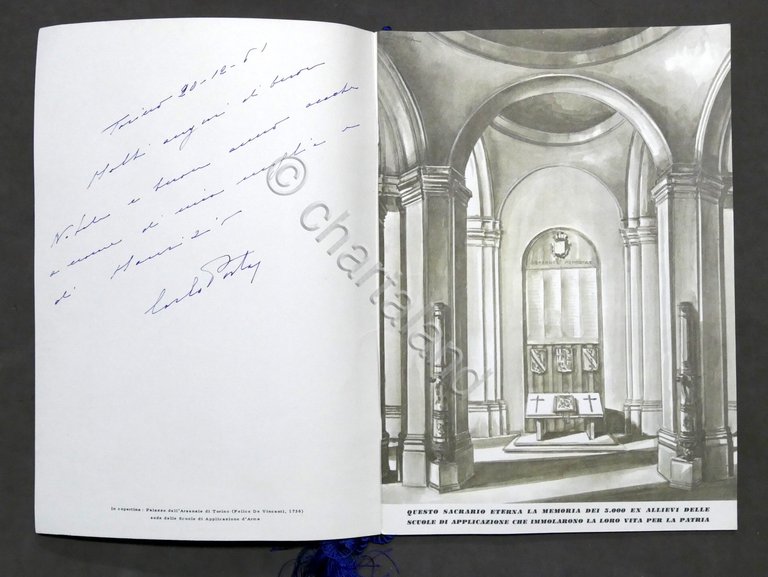 Torino 20-12-61
Molti auguri di buon
Natale e buon anno anche
a nome di mia moglie e
di Maurizio
Carlo
In copertina: Palazzo dell'Arsenale di Torino (Felice De Vincenti, 1736)
sede delle Scuole di Applicazione d'Arma
© chartaland
QUESTO SACRARIO ETERNA LA MEMORIA DEI 5.000 EX ALLIEVI DELLE
SCUOLE DI APPLICAZIONE CHE IMMOLARONO LA LORO VITA PER LA PATRIA